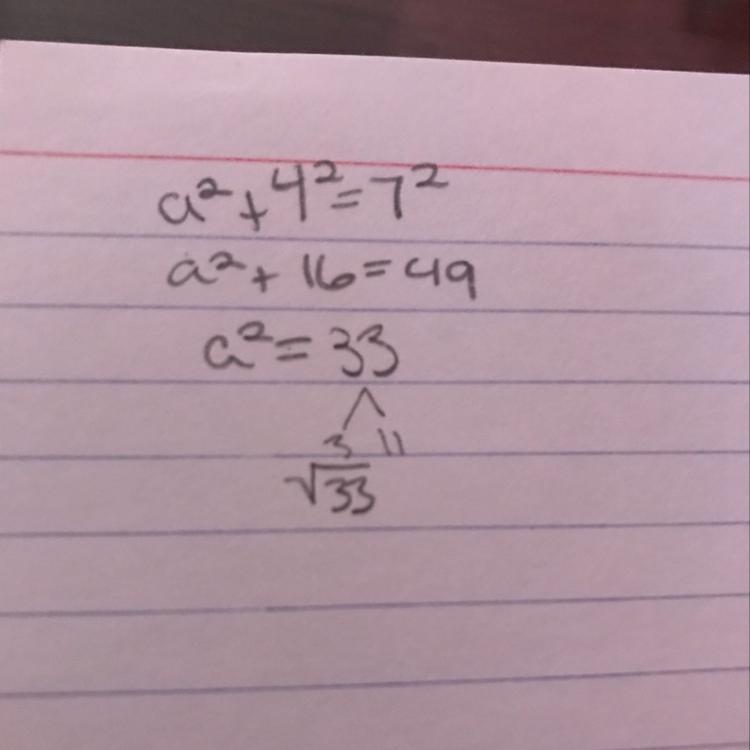 a²+4²=7²
a²+16=49
a²=33
3 11
√33